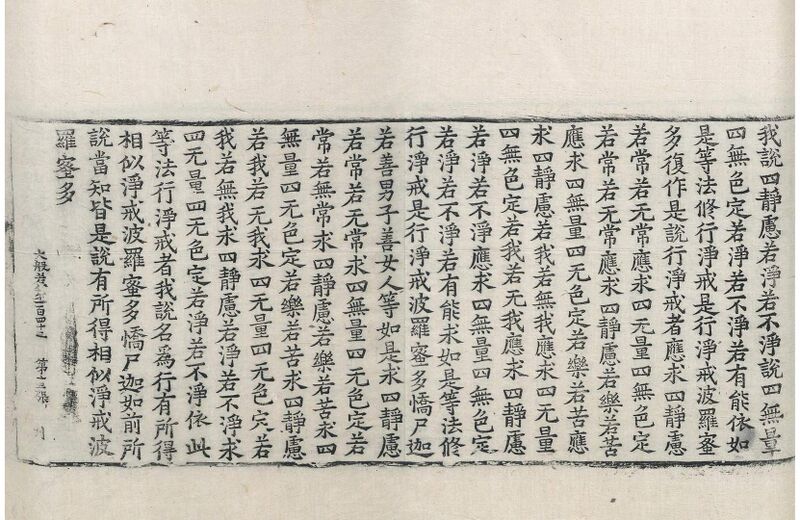 我說四靜慮若淨若不淨說四無量
四無色定若淨若不淨若有能依如
是等法修行淨戒是行淨戒波羅蜜
多復作是說行淨戒者應求四靜慮
若常若无常應求四无量四無色定
若常若无常應求四靜慮若樂若苦
應求四無量四无色定若樂若苦應
求四靜慮若我若無我應求四无量
四無色定若我若无我應求四靜慮
若淨若不淨應求四無量四无色定
若淨若不淨若有能求如是等法修
行淨戒是行淨戒波羅蜜多憍尸迦
若善男子善女人等如是求四靜慮
若常若无常求四無量四无色定若
常若無常求四靜慮若樂若苦求四
無量四无色定若樂若苦求四靜慮
若我若无我求四无量四无色定若
我若無我求四靜慮若淨若不淨求
四无量四无色定若淨若不淨依此
等法行淨戒者我說名為行有所得
相似淨戒波羅蜜多憍尸迦如前所
說當知皆是說有所得相似淨戒波
羅蜜多
大般若 百四十三 第十三張